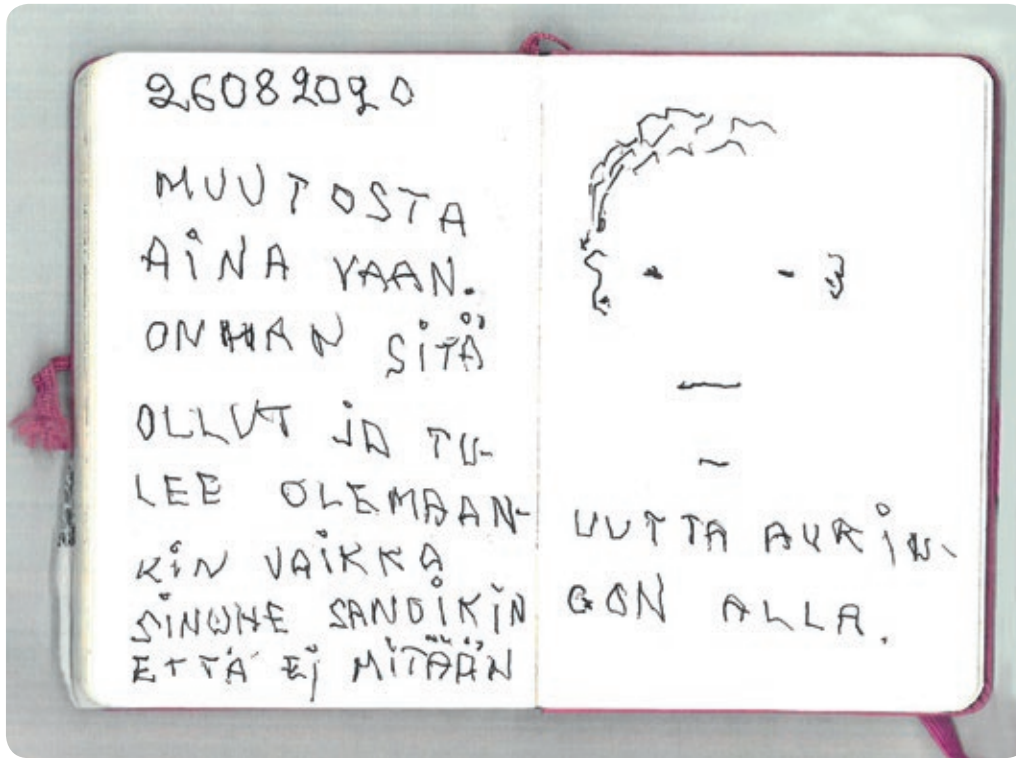 26082020
MUUTOSTA
AINA VAAN.
ONHAN SITÄ
OLLUT JA TU-
LEE OLEMAAN-
KIN VAIKKA
SINUHE SANOIKIN
ETTÄ EI MITÄÄN
UUTTA AURIN-
GON ALLA.